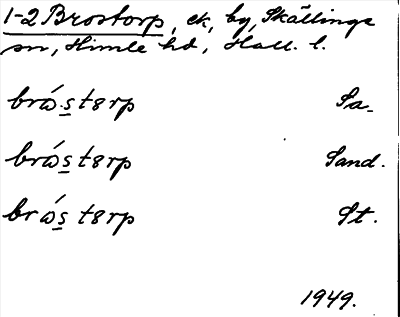 1-2 Brostorp, ek, by, Skällinge
sn, Himle hd, Hall. l.
brώs̲tɵrp Sa.
brώs̲tɵrp Sand.
brώs̲tɵrp St.
1949.